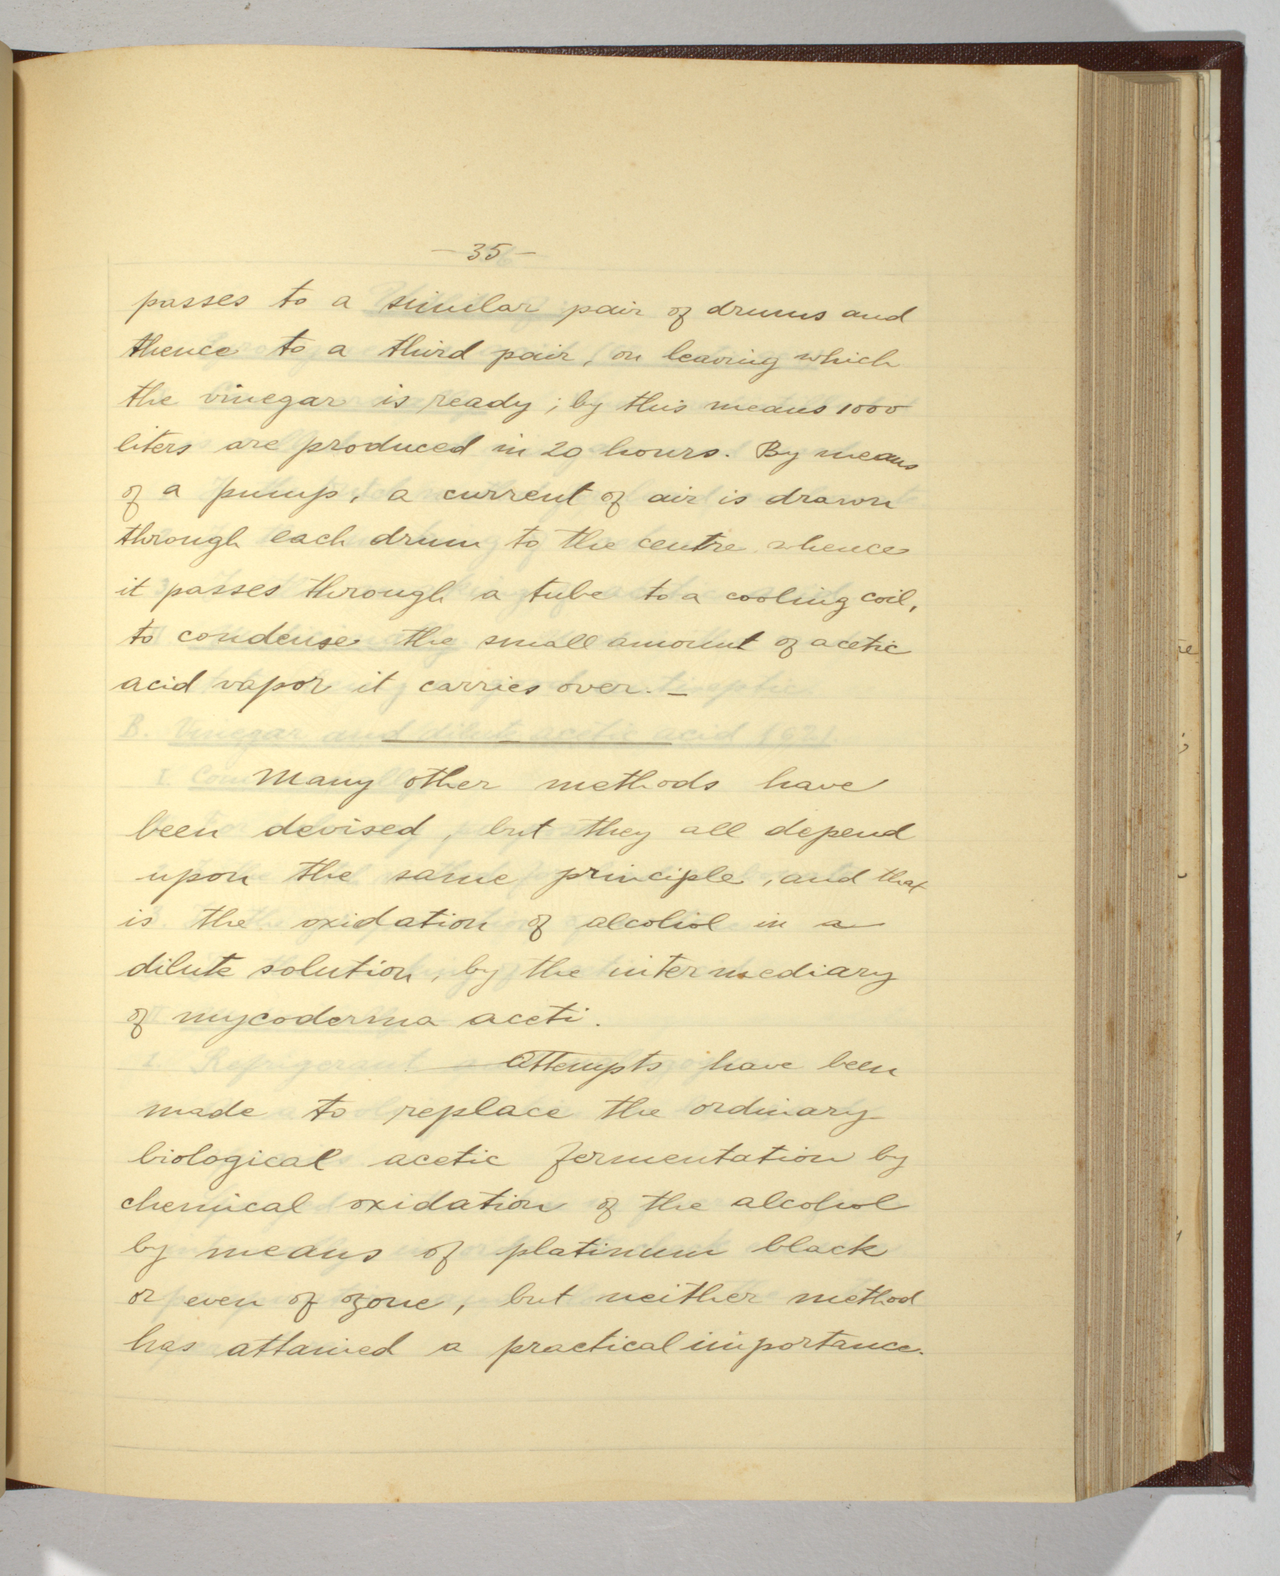 -35-
passes to a similar pair of drums and
thence to a third pair, on leaving which
the vinegar is ready; by this means 1000
liters are produced in 20 hours. By means
of a pump, a current of air is drawn
through each drum to the centre whence
it passes through a tube to a cooling coil,
to condense the small amount of acetic
acid vapor it carries over. -
B. Vinegar and dilute acetic acid
Many other methods have
been devised, but they all depend
upon the same principle, and that
is the oxidation of alcohol in a
dilute solution, by the intermediary
of mycoderma aceti.
Refrigerant
Attempts have been
made to replace the ordinary
biological acetic fermentation by
chemical oxidation of the alcohol
by means of platinum black
or even of ozone, but neither method
has attained a practical importance.